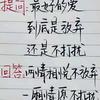 提问:最好的爱
到底是放弃
还是不打扰
回答:两情相悦不放弃
一厢情愿不打扰